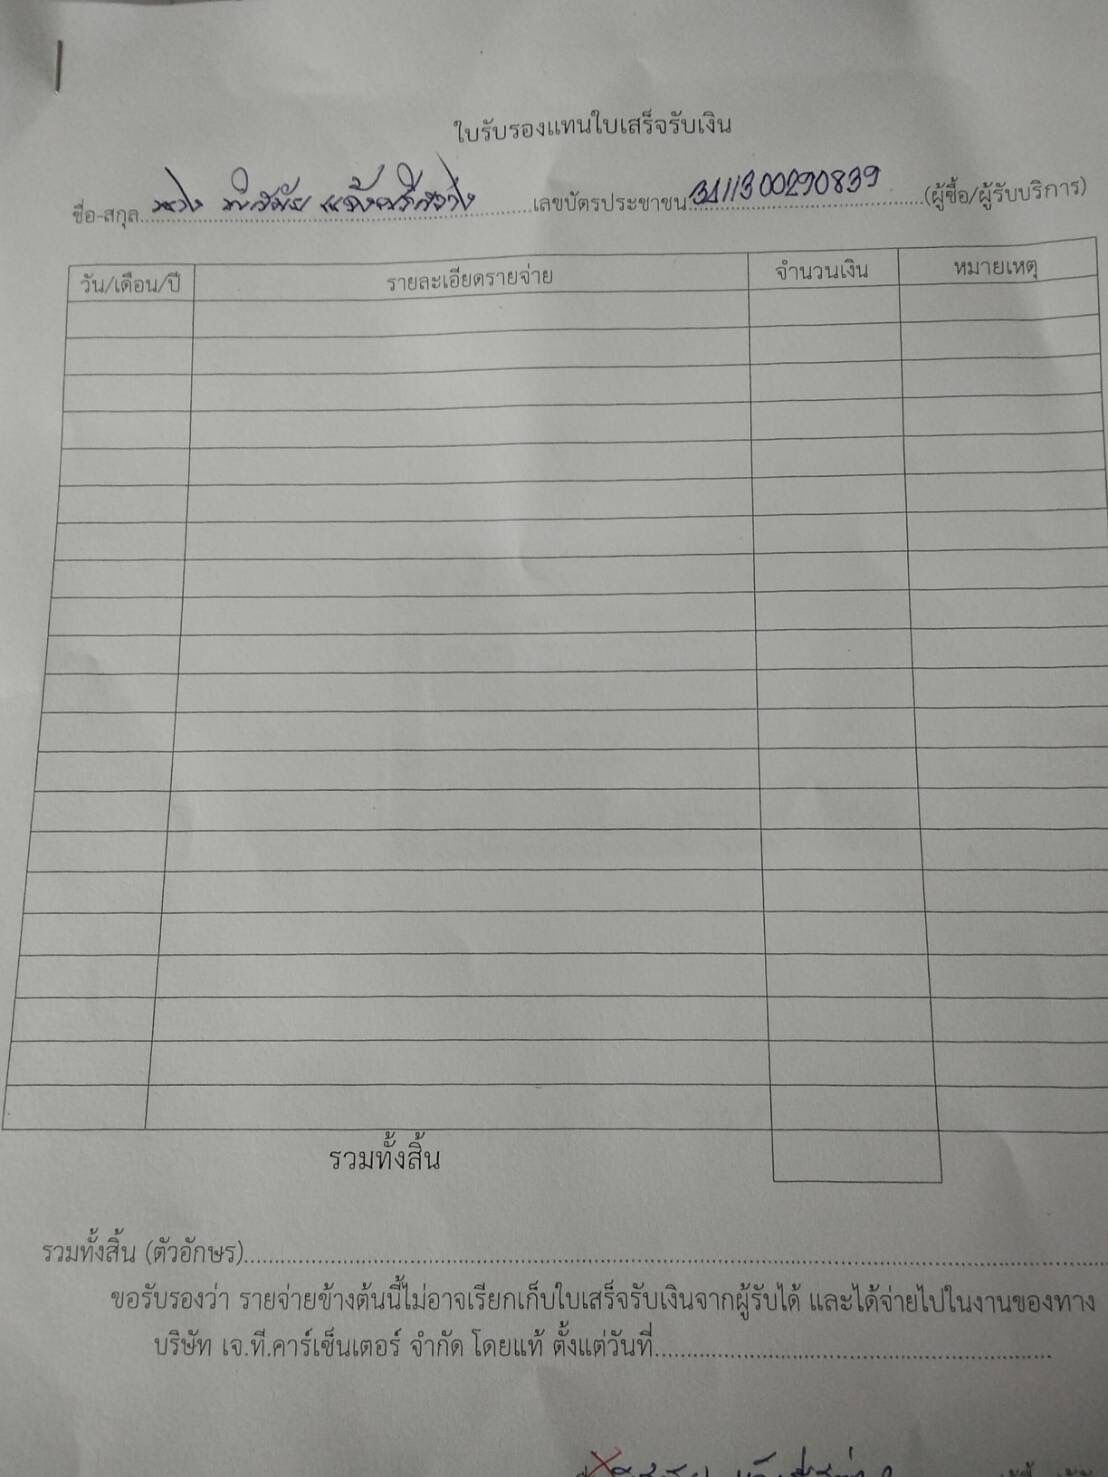 ใบรับรองแทนใบเสร็จรับเงิน
ชื่อ-สกุล นาง พิสมัย แจ้งศรีสว่าง เลขบัตรประชาชน 3411300290839 (ผู้ซื้อ/ผู้รับบริการ)
วัน/เดือน/ปี รายละเอียดรายจ่าย จำนวนเงิน หมายเหตุ
รวมทั้งสิ้น
รวมทั้งสิ้น (ตัวอักษร)
ขอรับรองว่า รายจ่ายข้างต้นนี้ไม่อาจเรียกเก็บใบเสร็จรับเงินจากผู้รับได้ และได้จ่ายไปในงานของทาง
บริษัท เจ.ที.คาร์เซ็นเตอร์ จำกัด โดยแท้ ตั้งแต่วันที่